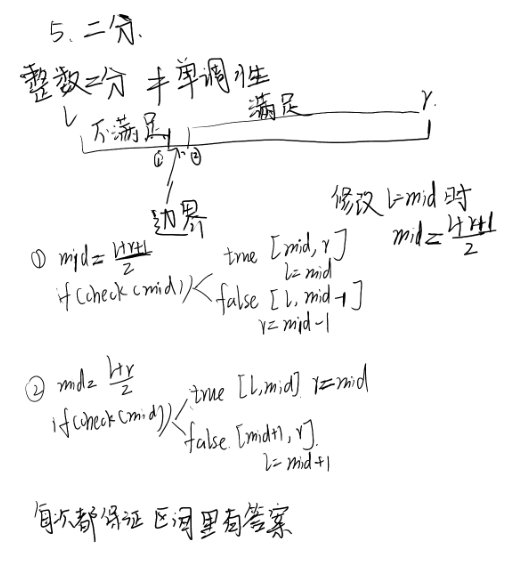 5、二分.
整数二分 ≠ 单调性
l 不满足 满足 r.
① ②
边界
修改 l=mid 时
mid = l+r+1/2
① mid = l+r+1/2
if(check(mid)) true [mid, r]
l=mid
false [l, mid-1]
r=mid-1
② mid = l+r/2
if(check(mid)) true [l,mid] r=mid
false. [mid+1, r].
l=mid+1
每次都保证 区间里有答案